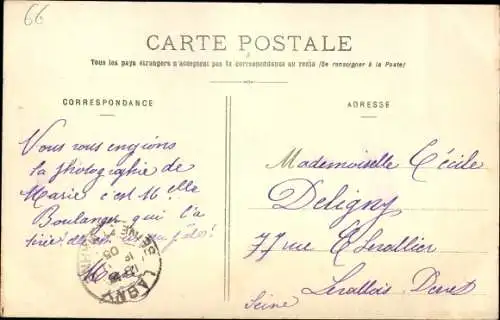 66
CARTE POSTALE
Tous les pays étrangers n'acceptent pas la correspondance au recto (Se renseigner à la Poste)
CORRESPONDANCE
ADRESSE
Vous vous envoyons
la photographie de
Marie c'est M elle
Boulanger qui l'a
tirée
Mademoiselle Cécile
Deligny
77 rue Chevallier
Levallois Perret
Seine